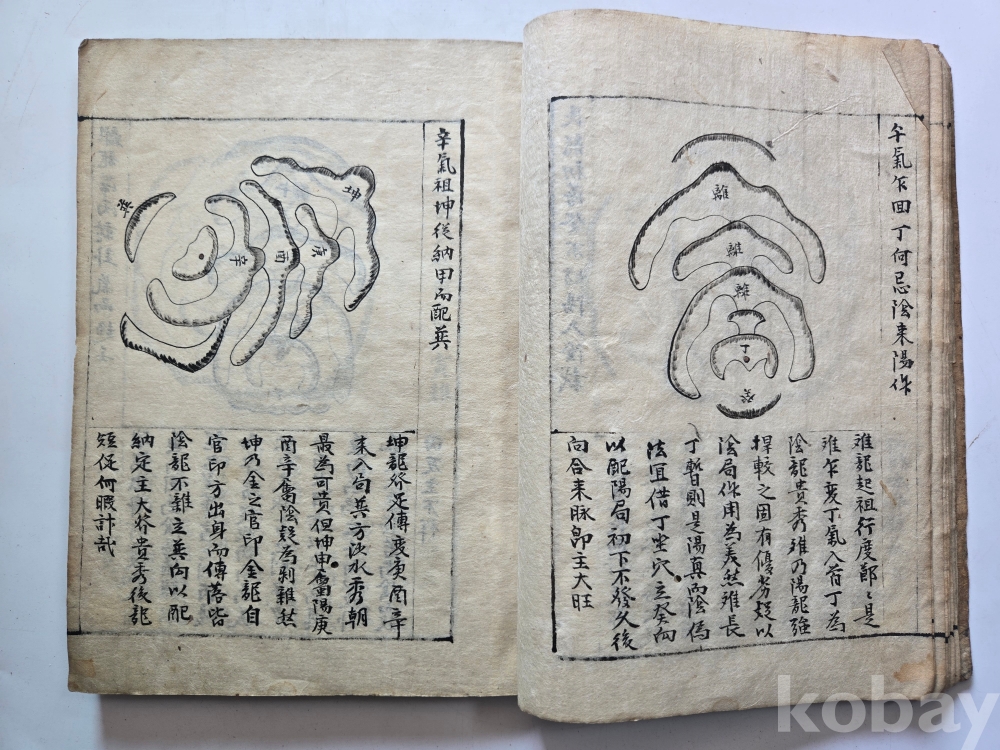 午氣乍回丁何忌陰来陽作
離
離
離
丁
癸
难龍起祖行度節〻是
难乍变丁氣入首丁為
陰龍貴秀难乃陽龍強
捍較之固有優劣疑以
陰局作用為美然难長
丁暫則是陽真而陰偽
法宜借丁坐穴立癸向
以配陽局初下不發久後
向合来脉卽主大旺
辛氣祖坤從納甲而配巽
坤
庚
酉
辛
巽
坤龍終足傳变庚酉辛
来入首巽方汲水秀朝
最為可貴但坤申屬陽庚
酉辛屬陰疑為剥雜杀
坤乃金之官印金龍自
官印方出身而傳落皆
陰龍不雜立巽向以配
納定主大發貴秀後龍
短促何暇計哉
kobay